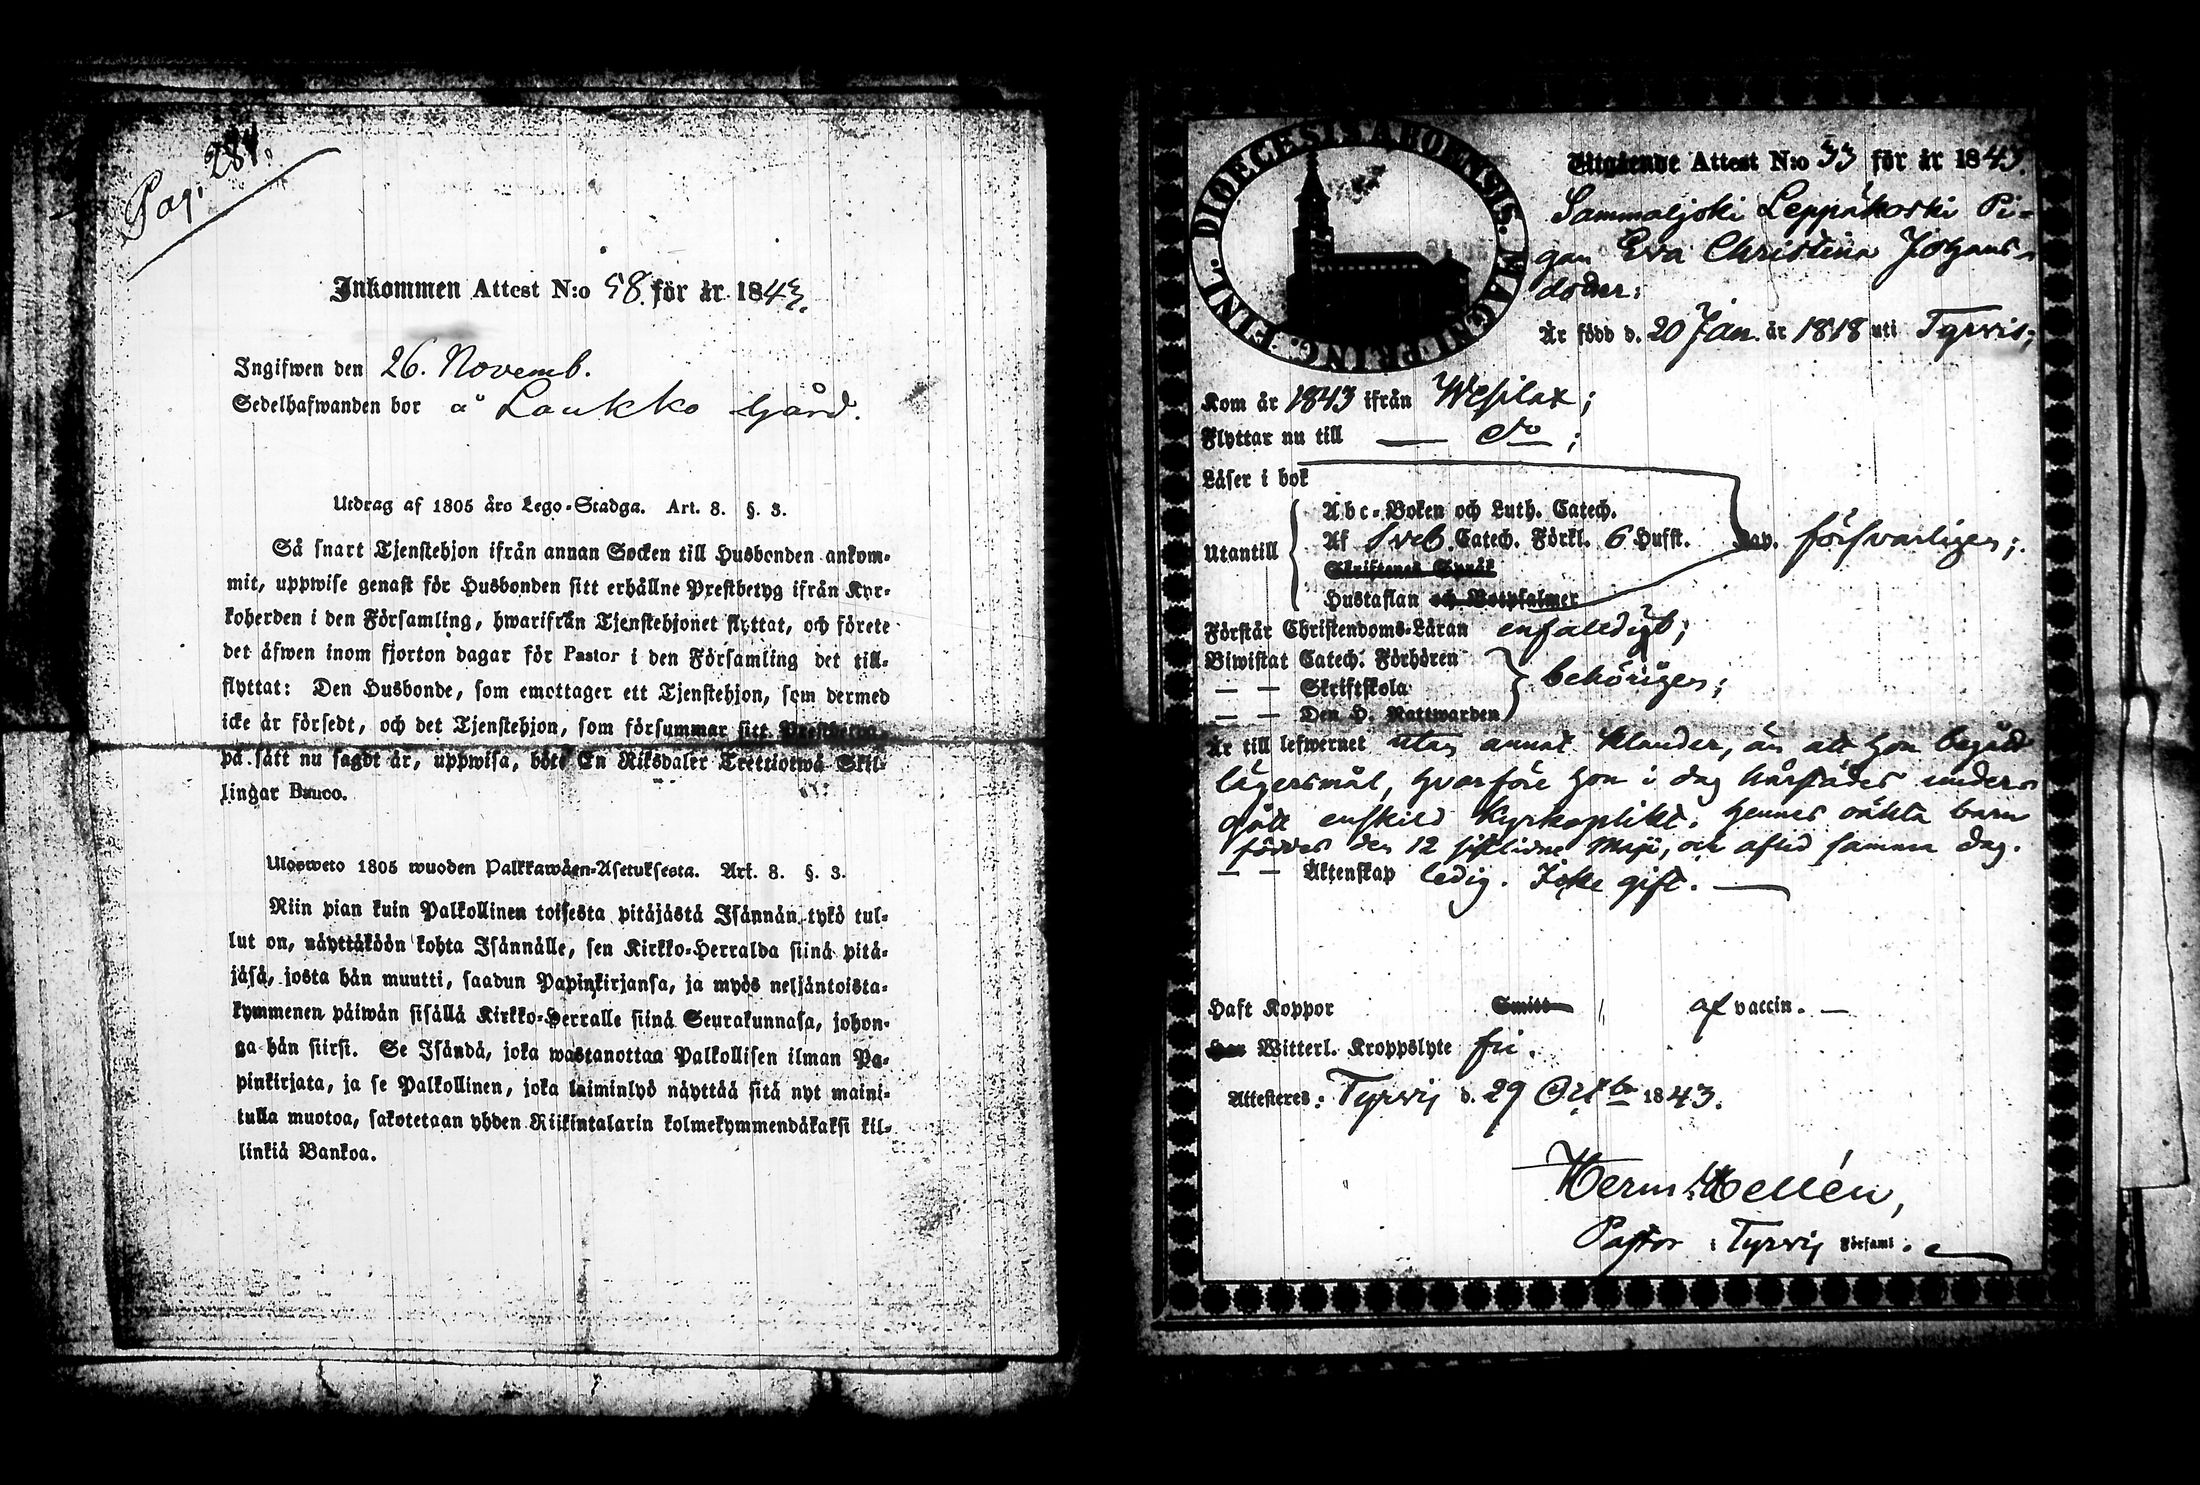 Pag. 284.
Inkommen Attest N:o 58. för år 1843.
Ingifwen den 26. Novemb.
Sedelhafwanden bor å Laukko Gård.
Utdrag af 1805 års Lego-Stadga. Art. 8. §. 3.
Så snart Tjenstehjon ifrån annan Socken till Husbonden ankom-
mit, uppwise genast för Husbonden sitt erhållne Prestbetyg ifrån Kyr-
koherden i den Församling, hwarifrån Tjenstehjonet flyttat, och förete
det äfwen inom fjorton dagar för Pastor i den Församling det till-
flyttat: Den Husbonde, som emottager ett Tjenstehjon, som dermed
icke är försedt, och det Tjenstehjon, som försummar sitt Prestbetyg,
på sätt nu sagdt är, uppwisa, böte En Riksdaler Trettiotwå Skil-
lingar Banco.
Ulosweto 1805 wuoden Palkkawäen-Asetuksesta. Art. 8. §. 3.
Niin pian kuin Palkollinen toisesta pitäjästä Isännän tykö tul-
lut on, näyttäköön kohta Isännälle, sen Kirkko-Herralda siinä pitä-
jäsä, josta hän muutti, saadun Papinkirjansa, ja myös neljäntoista-
kymmenen päiwän sisällä Kirkko-Herralle siinä Seurakunnasa, johon-
ga hän siirsi. Se Isändä, joka wastanottaa Palkollisen ilman Pa-
pinkirjata, ja se Palkollinen, joka laiminlyö näyttää sitä nyt maini-
tulla muotoa, sakotetaan yhden Riikintalarin kolmekymmendäkaksi kil-
linkiä Bankoa.
DIOECESIS ABOENSIS. MAGNI PRINC. FINL.
Utgående Attest N:o 33 för år 1843.
Sammaljoki Leppäkoski Pi-
gan Eva Christina Johans-
doter:
Är född d. 20 Jan. år 1818 uti Tyrvis;
Kom år 1843 ifrån Wesilax;
Flyttar nu till — do ;
Läser i bok
Utantill
Abc-Boken och Luth. Catech.
Af Sveb. Catech. Förkl. 6 Hufst. Cap. försvarligen;
Skriftenes Språk
Hustaflan och Botpsalmer
Förstår Christendoms-Läran enfaldigt;
Biwistat Catech. Förhören
— — Skriftskola behörigen;
— — Den H. Nattwarden
Är till lefwernet utan annat klander, än att hon begått
lägersmål, hvarföre hon i dag härstädes under-
gått enskild kyrkoplikt. Hennes oäkta barn
föddes den 12 sistlidne Maji, och afled samma dag.
— — Äktenskap ledig. Icke gift. —
Haft Koppor Smitt af vaccin. —
Har Witterl. Kroppslyte fri.
Attesteres: Tyrvis d. 29 Octb 1843.
Herm. Hellén,
Pastor i Tyrvis Församl.